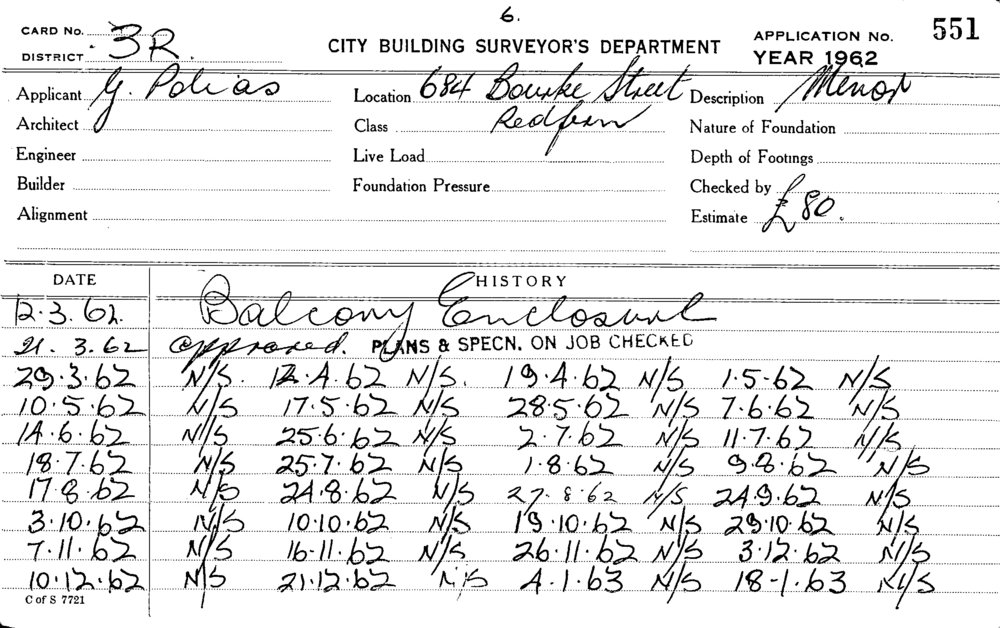 6.
CARD No. APPLICATION No. 551
DISTRICT 3R. CITY BUILDING SURVEYOR'S DEPARTMENT YEAR 1962
Applicant G. Polias Location 684 Bourke Street Description Minor
Architect Class Redfern Nature of Foundation
Engineer Live Load Depth of Footings
Builder Foundation Pressure Checked by
Alignment Estimate £80.
DATE HISTORY
12.3.62. Balcony Enclosure
21.3.62 approved. PLANS & SPECN. ON JOB CHECKED
29.3.62 N/S. 12.4.62 N/S. 19.4.62 N/S 1.5.62 N/S
10.5.62 N/S 17.5.62 N/S 28.5.62 N/S 7.6.62 N/S
14.6.62 N/S 25.6.62 N/S 2.7.62 N/S 11.7.62 N/S
18.7.62 N/S 25.7.62 N/S 1.8.62 N/S 9.8.62 N/S
17.8.62 N/S 24.8.62 N/S 27.8.62 N/S 24.9.62 N/S
3.10.62 N/S 10.10.62 N/S 19.10.62 N/S 29.10.62 N/S
7.11.62 N/S 16.11.62 N/S 26.11.62 N/S 3.12.62 N/S
10.12.62 N/S 21.12.62 N/S 4.1.63 N/S 18.1.63 N/S
C of S 7721